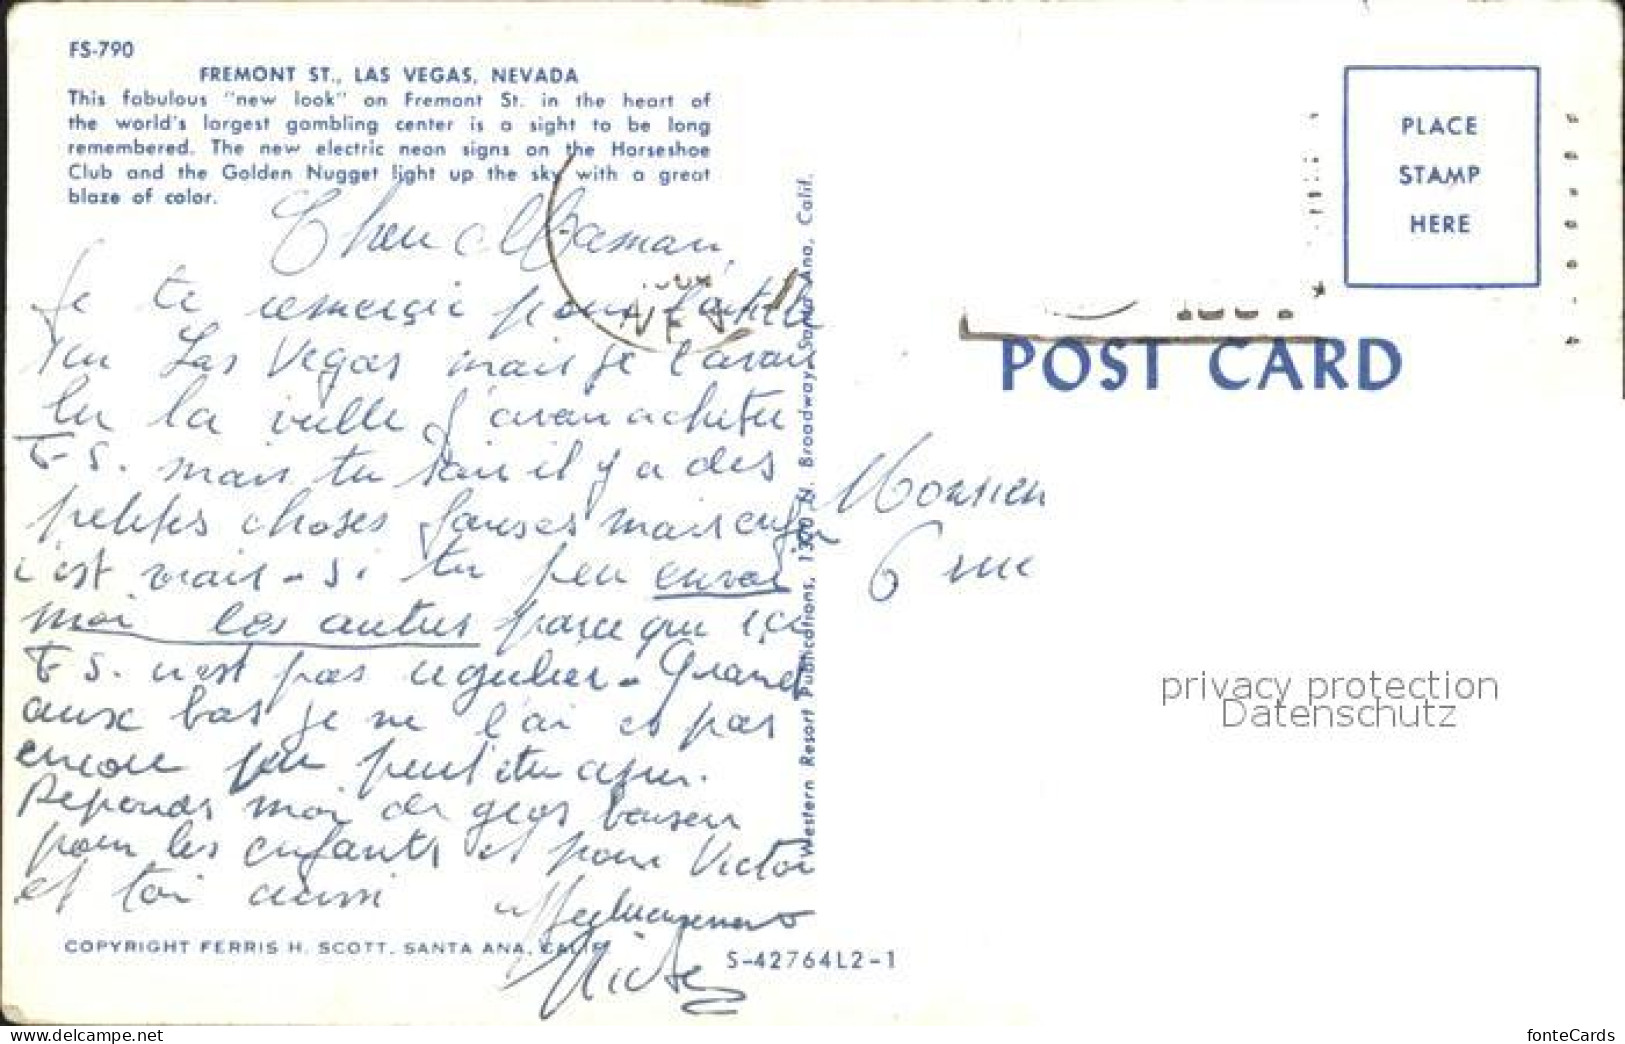 FS-790
FREMONT ST., LAS VEGAS, NEVADA
This fabulous "new look" on Fremont St. in the heart of
the world's largest gambling center is a sight to be long
remembered. The new electric neon signs on the Horseshoe
Club and the Golden Nugget light up the sky with a great
blaze of color.
Maman,
Je te remercie pour l'article
sur Las Vegas mais je l'avais
lu la veille j'avais acheté
F-S. mais tu sais il y a des
petites choses fausses mais enfin
c'est vrai - si tu peu envoi
moi les autres parce que ici
F S. n'est pas regulier - Grand
aux bas je ne l'ai et pas
encore peut
Reponds moi de gros baisers
pour les enfants et pour Victor
et toi aussi
Affectueusement
COPYRIGHT FERRIS H. SCOTT, SANTA ANA, CALIF.
S-42764L2-1
Western Resort Publications, 1300 N. Broadway, Santa Ana, Calif.
NEV
PLACE
STAMP
HERE
POST CARD
Monsieur
6 rue
privacy protection
Datenschutz
© www.delcampe.net
fonteCards